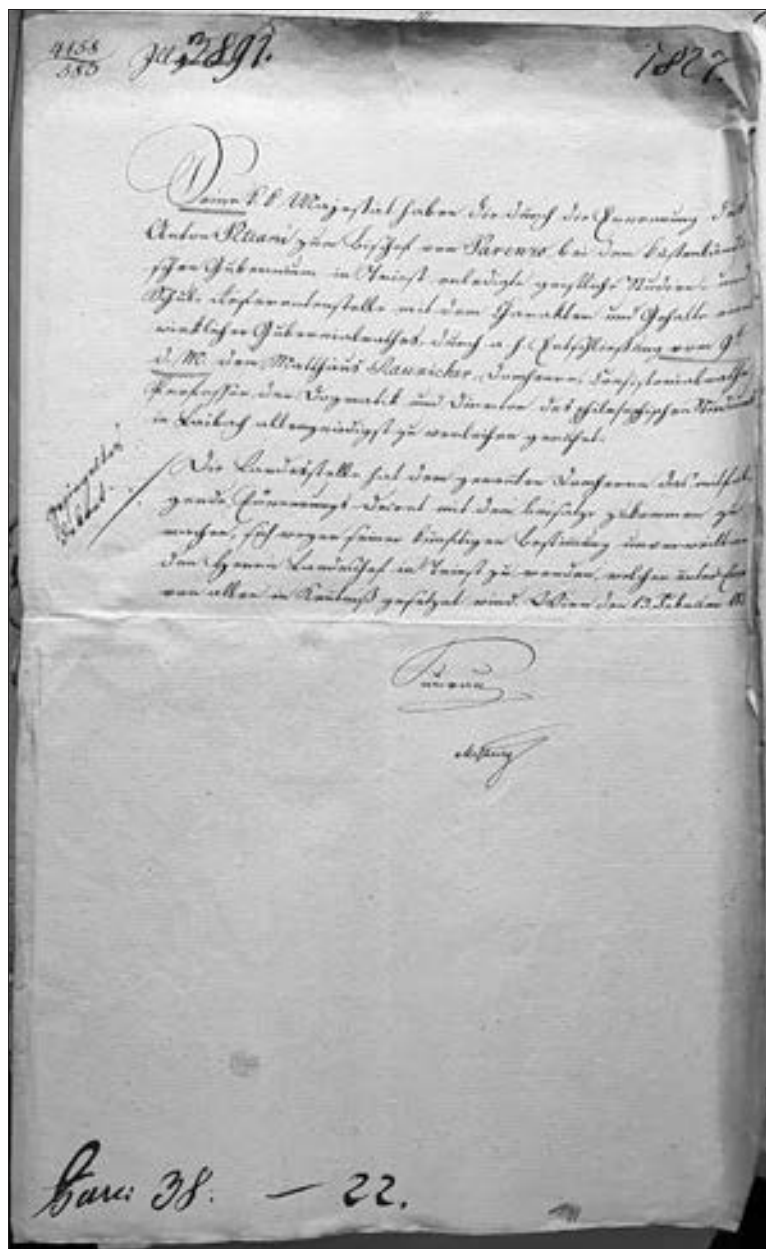 4158
583
2891.
1827.
Seine k. k. Majestät haben die durch die Ernennung des
Anton zum Bischof von Parenzo bei dem küstenländi-
schen Gubernium in Triest erledigte geistliche Studien- und
Schul-Referentenstelle mit dem Charakter und Gehalte eines
wirklichen Gubernialrathes durch a. h. Entschließung vom 9t
d. M. dem Matthäus Raunicher, Domherrn, Consistorialrathe
Professor der Dogmatik und Director des philosophischen Studiums
in Laibach allergnädigst zu verleihen geruhet.
Die Landesstelle hat dem genannten Domherrn das mitfol-
gende Ernennungs-Decret mit dem Beisatze zu
machen, sich wegen seiner künftigen Bestimmung unverweilt an
den Herrn Landeschef in Triest zu wenden, welcher unter Einem
von allem in Kenntniß gesetzt wird. Wien den 13. Februar
Saurau
38. — 22.